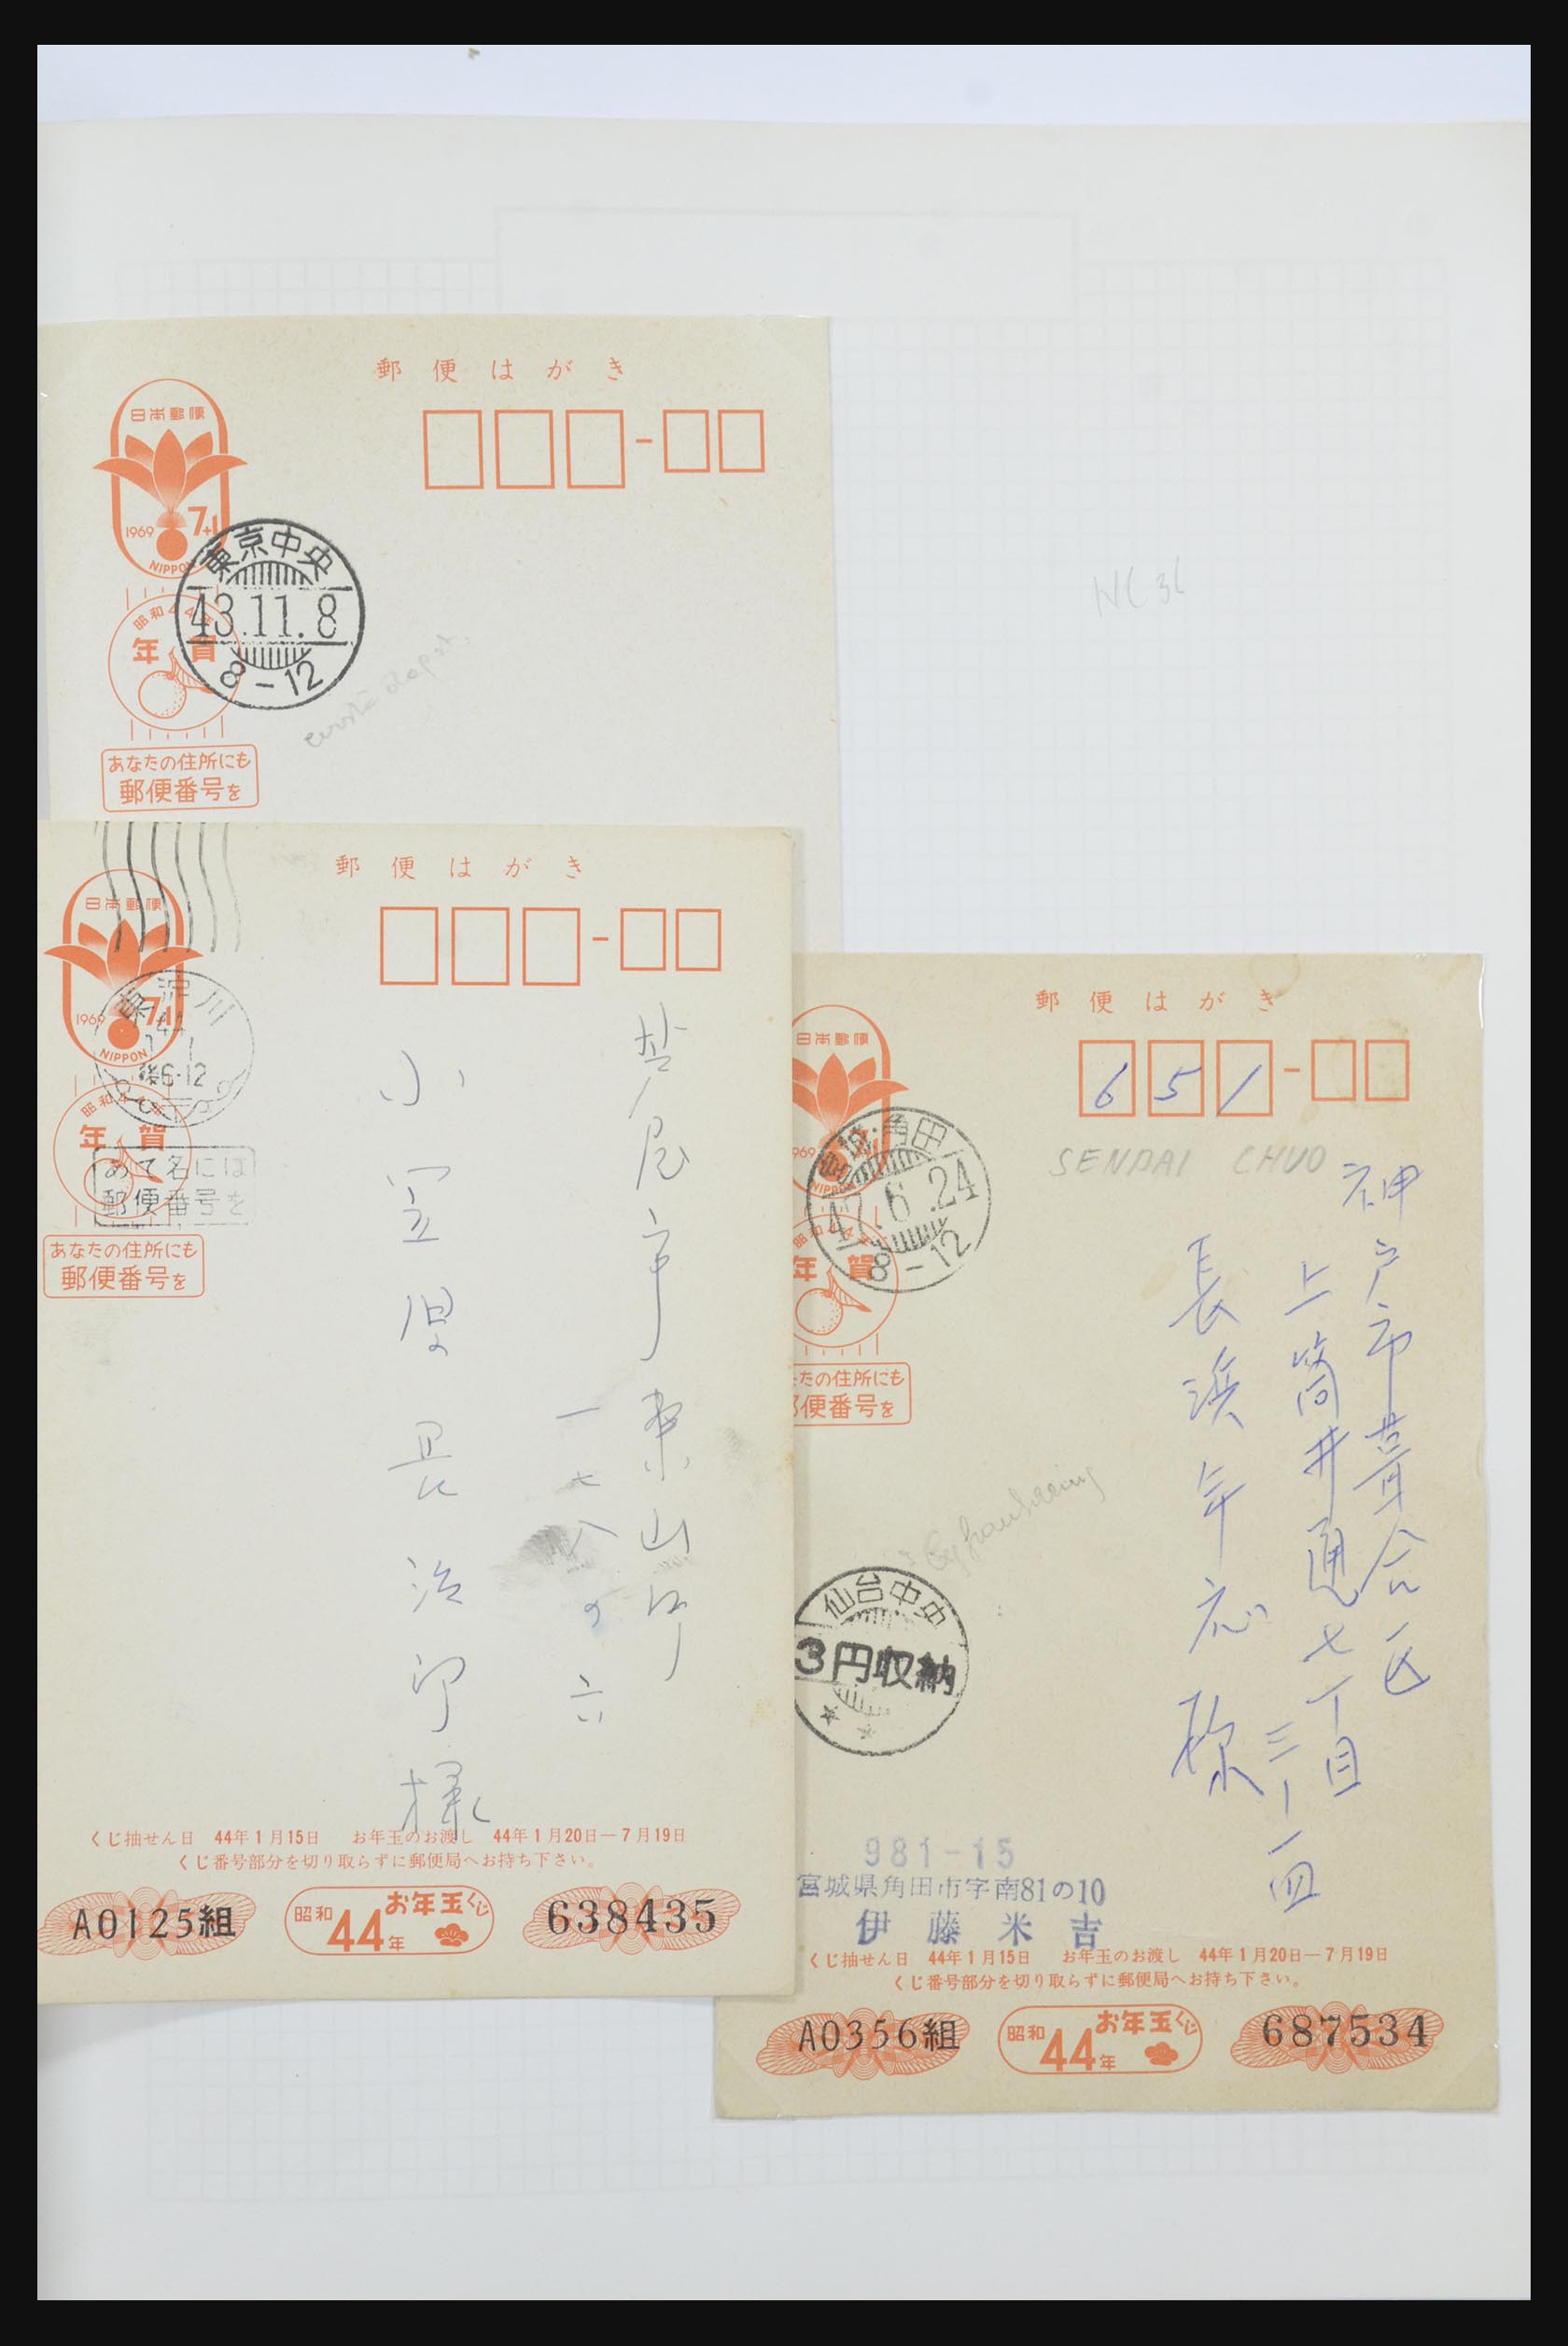 郵便はがき
日本郵便
1969
7+1
NIPPON
東京中央
43.11.8
8-12
昭和44年
年賀
あなたの住所にも
郵便番号を
NC 36
郵便はがき
日本郵便
1969
7+1
NIPPON
東淀川
44
1 1
後6-12
昭和44年
年賀
あて名には
郵便番号を
あなたの住所にも
郵便番号を
芦屋市東山町
一七八の六
小笠原長治郎様
くじ抽せん日 44年1月15日 お年玉のお渡し 44年1月20日ー7月19日
くじ番号部分を切り取らずに郵便局へお持ち下さい。
A0125組
昭和44年お年玉くじ
638435
郵便はがき
日本郵便
969
NIPPON
651
SENDAI CHUO
宮城・角田
47.6.24
8-12
昭和44
年賀
たの住所にも
便番号を
神戸市葺合区
上筒井通七丁目
三ー一四
長浜年応様
仙台中央
3円収納
981-15
宮城県角田市字南81の10
伊藤米吉
くじ抽せん日 44年1月15日 お年玉のお渡し 44年1月20日ー7月19日
くじ番号部分を切り取らずに郵便局へお持ち下さい。
A0356組
昭和44年お年玉くじ
687534